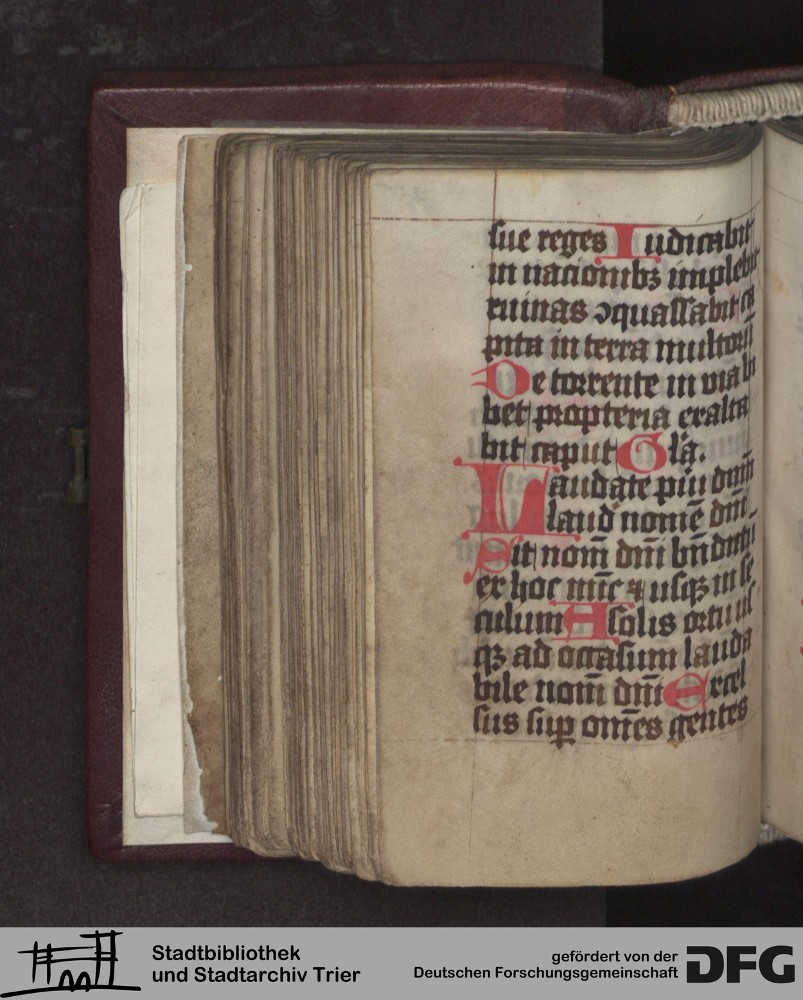 sue reges Iudicabit
in nacionibꝫ implebit
ruinas ɔquassabit ca
pita in terra multoꝝ
De torrente in via bi
bet propterea exalta
bit caput Gl̄a.
Laudate pīu dnm̄
laud nomē dn̄i
Sit nom̄ dn̄i bn̄dictū
ex hoc nūc ⁊ usqꝫ in se
culum A solis ortu us
qꝫ ad occasum lauda
bile nom̄ dn̄i Excel
sus suꝑ om̄es gentes
Stadtbibliothek
und Stadtarchiv Trier
gefördert von der
Deutschen Forschungsgemeinschaft
DFG